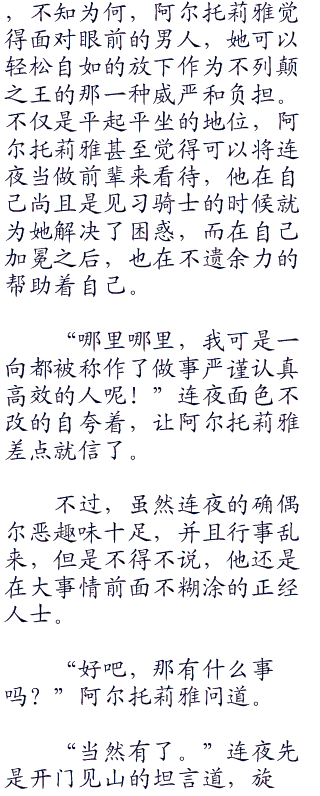 ，不知为何，阿尔托莉雅觉
得面对眼前的男人，她可以
轻松自如的放下作为不列颠
之王的那一种威严和负担。
不仅是平起平坐的地位，阿
尔托莉雅甚至觉得可以将连
夜当做前辈来看待，他在自
己尚且是见习骑士的时候就
为她解决了困惑，而在自己
加冕之后，也在不遗余力的
帮助着自己。
“哪里哪里，我可是一
向都被称作了做事严谨认真
高效的人呢！”连夜面色不
改的自夸着，让阿尔托莉雅
差点就信了。
不过，虽然连夜的确偶
尔恶趣味十足，并且行事乱
来，但是不得不说，他还是
在大事情前面不糊涂的正经
人士。
“好吧，那有什么事
吗？”阿尔托莉雅问道。
“当然有了。”连夜先
是开门见山的坦言道，旋